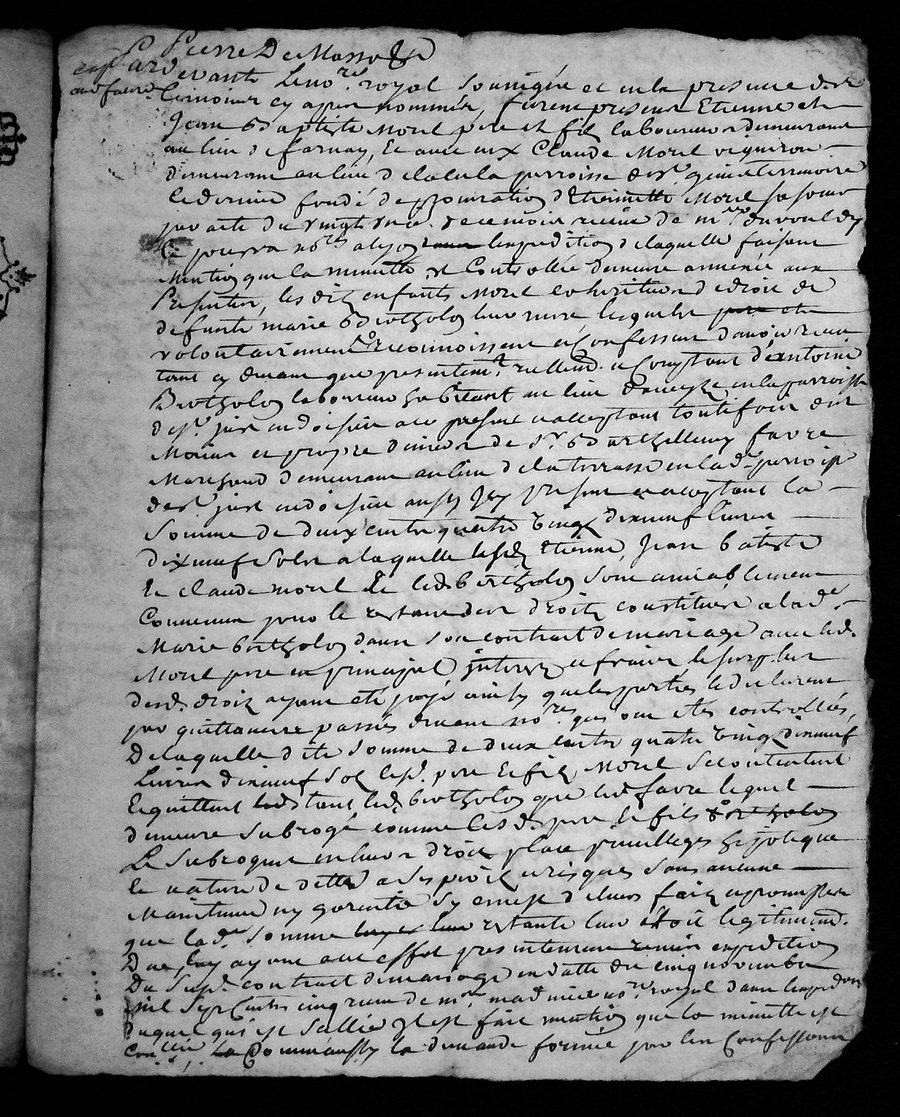 Pierre De Masso
Pardevant Le no.re royal Soussigné et en la presence des
temoins cy apres nommés, furent presens Etienne et
Jean Baptiste Morel pere et fils laboureurs demeurant
au lieu de farnay, Et avec eux Claude Morel vigneron
demeurant au lieu de la cula parroisse de st genis terrenoire
le dernier fondé de procuration d'Etiennette Morel sa soeur
par acte du vingt
no.re expedition de laquelle faisant
Mention que la minutte est Controllée demeure annexée aux
Presentes, les dits enfants Morel coheritiers de droit de
defunte marie Bertholon leur mere lesquels
volontairement reconnoissent et Confessent d'avoir reçu
tant cy devant que presentemt. reellemt. et Comptant d'antoine
Bertholon laboureur habitant au lieu en la parroisse
de st. just en doisieu present et acceptant
et propre deniers de sr. Barthellemy favre
Marchand demeurant au lieu de la terrasse en lad. parroisse
de st. just en doisieu aussy Icy present et acceptant la
Somme de deux cents quatre vingt dixneuf livres
dixneuf sols a laquelle lesd. Etienne, Jean batiste
Et claude morel Et led. bertholon sont amiablement
Convenus pour le restant des droits constitués a lad.
Marie bertholon dans son contrat de mariage avec led.
Morel pere en principal, interets et frais le surplus
desd. droits ayant été payé ainsy que les parties le declarent
par quittances passés devant no.res qui ont étés controllés,
De laquelle dite somme de deux cents quatre vingt dixneuf
Livres dixneuf sols lesd. pere et fils Morel se contentent
et quittent tant led. bertholon que led. favre lequel
demeure subrogé comme lesd. pere et fils
Le subrogent en leurs droits place privilleges hypoteque
et nature de dette a ses perils et risques sans aucune
Maintenue ny garentie sy ce n'est de leurs faits et promesses
que lad. somme restante leur étoit legitimemt.
Due, ayant a cet effet presentement remis expedition
Du susd. contrat de mariage en datte du cinq novembre
mil sept cents cinquante de me. no.re royal dans
duquel qui est scellée il est fait mention que la minutte est
la Comme aussy la demande formée par les Confessans